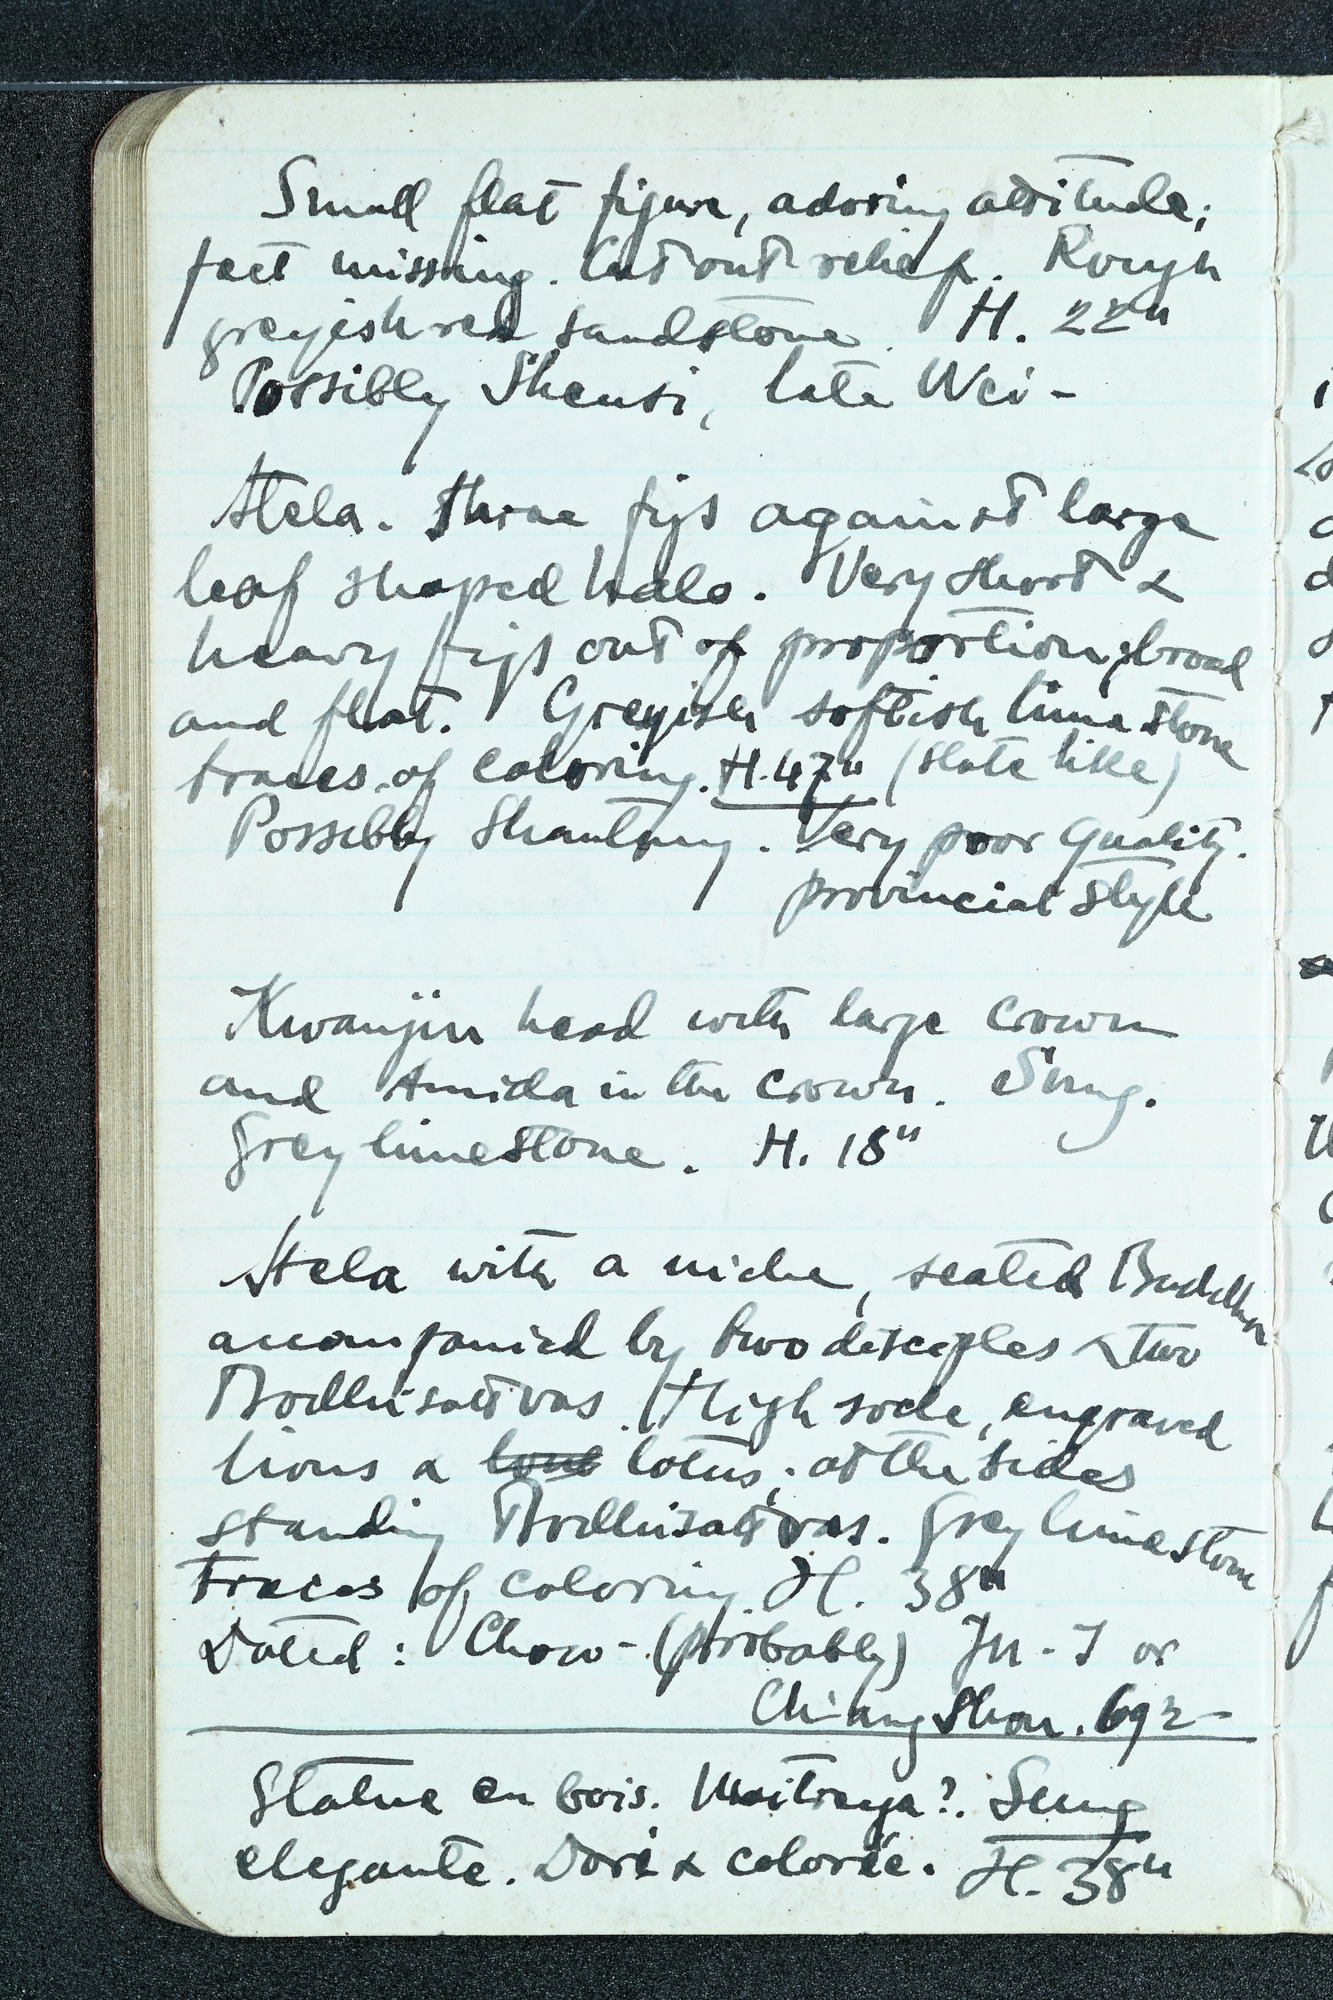 Small flat figure, adoring attitude;
feet missing. Cut out relief. Rough
greyish red sandstone. H. 22"
Possibly Shensi, late Wei -
Stela. Three figs against large
leaf shaped halo. Very short &
heavy figs out of proportion, broad
and flat. Greyish softish limestone
traces of coloring. H. 47" (slate like)
Possibly Shantung. Very poor quality.
provincial style
Kwanjin head with large crown
and Amida in the crown. Sung.
Grey limestone. H. 18"
Stela with a niche, seated Buddha
accompanied by two disciples & two
Bodhisattvas. High socle, engraved
lions & lotus; at the sides
standing Bodhisattvas. Grey limestone
traces of coloring. H. 38"
Dated: Chow - (probably) or
Ch'ang Shou. 692 -
Statue en bois. Maitreya?. Sung
elegante. Doré & colorée. H. 38"